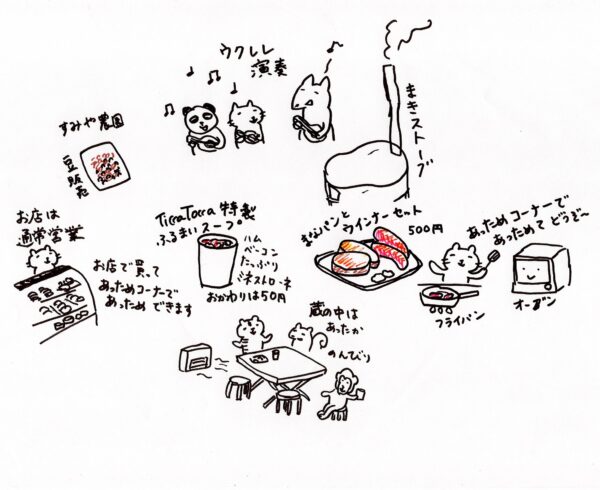 ウクレレ
演奏
まきストーブ
すみや農園
豆販売
お店は
通常営業
お店で買って
あっためコーナーで
あっため できます
TierraTorra 特製
ふるまいスープ
ハム
ベーコン
たっぷり
ミネストローネ
おかわりは50円
パンと
ウインナーセット
500円
あっためコーナーで
あっためて どうぞ〜
フライパン
オーブン
蔵の中は
あったか
のんびり